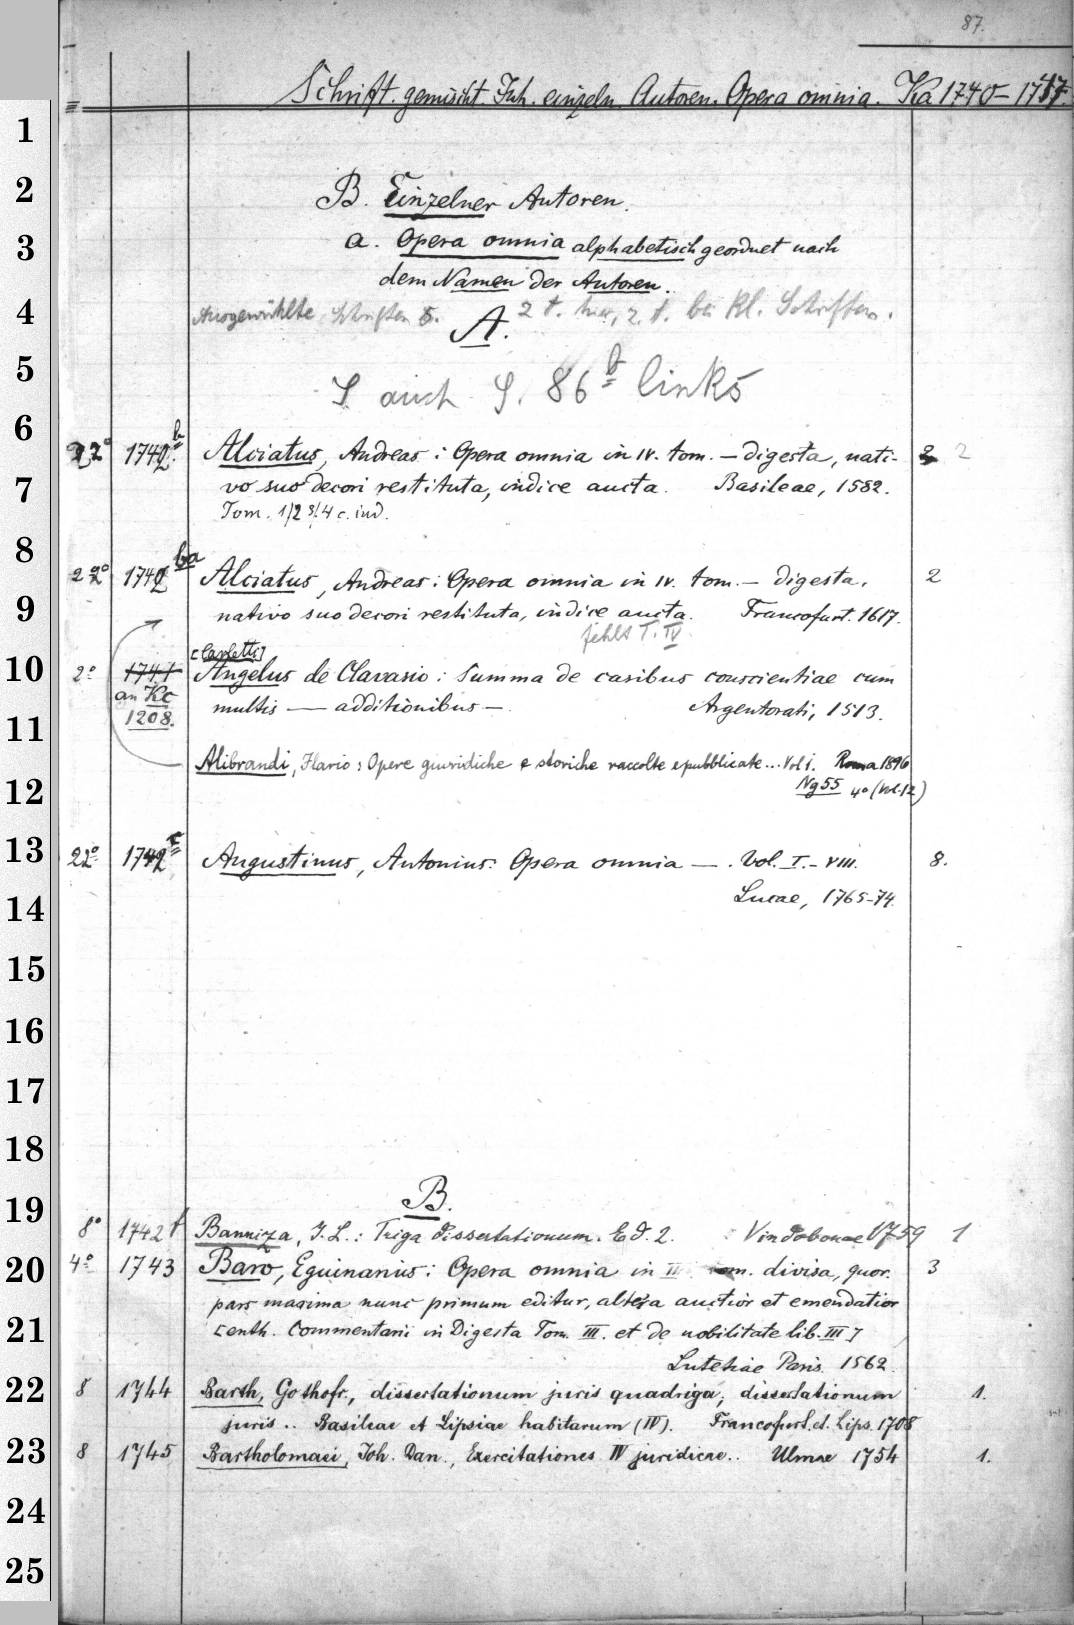 87.
Schrift. gemischt. Inh. einzeln. Autoren. Opera omnia. Ka 1740-1747.
1
2 B. Einzelner Autoren.
3 a. Opera omnia alphabetisch geordnet nach
dem Namen der Autoren.
4 Ausgewählte Schriften s. A. z. t. hier, z. t. bei kl. Schriften.
5 S auch S. 86b links
6
22° 1740b. Alciatus, Andreas: Opera omnia in IV. tom. — digesta, nati- 2
7 vo suo decori restituta, indice aucta. Basileae, 1582.
Tom. 1/2 3/4 c. ind.
8
22° 1740 ba Alciatus, Andreas: Opera omnia in IV. tom. — digesta, 2
9 nativo suo decori restituta, indice aucta. Francofurt. 1617.
fehlt T. IV
[Carletti]
10 2° 1741 Angelus de Clavasio: Summa de casibus conscientiae cum
an Kc multis — additionibus —. Argentorati, 1513.
1208.
11
Alibrandi, Ilario: Opere giuridiche e storiche raccolte e pubblicate... Vol I. Roma 1896
12 Ng 55 4° (Vol. 1.2)
13 22° 1742c Augustinus, Antonius: Opera omnia —. Vol. I.-VIII. 8.
14 Lucae, 1765-74.
15
16
17
18
19 B.
8° 1742f Banniza, J. L.: Triga dissertationum. Ed. 2. Vindobonae 1759 1
20 4° 1743 Baro, Eguinarius: Opera omnia in III tom. divisa, quor. 3
pars maxima nunc primum editur, altera auctior et emendatior
21 [enth. Commentarii in Digesta Tom. III. et de nobilitate lib. III]
Lutetiae Paris. 1562.
22 8 1744 Barth, Gothofr., dissertationum juris quadriga, dissertationum 1.
juris .. Basileae et Lipsiae habitarum (IV). Francofurt. et. Lips. 1708
23 8 1745 Bartholomaei, Joh. Dan., Exercitationes IV juridicae.. Ulmae 1754 1.
24
25